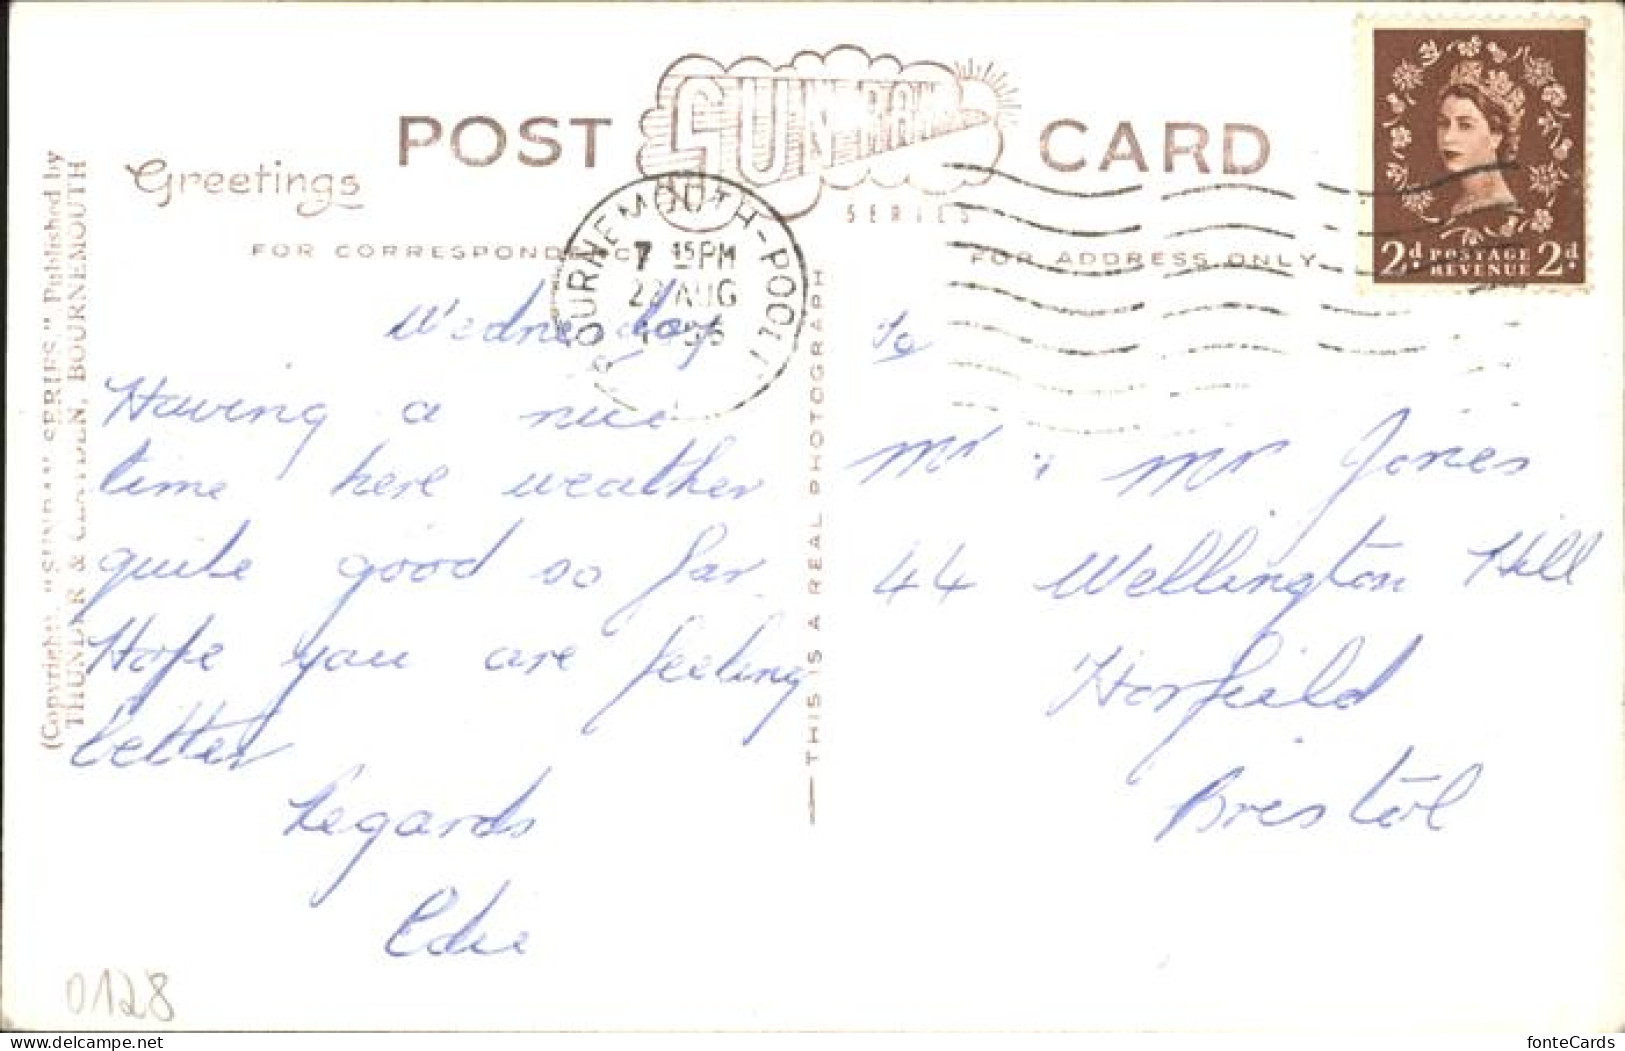 POST SUN-RAY CARD
SERIES
Greetings
FOR CORRESPONDENCE
FOR ADDRESS ONLY
BOURNEMOUTH-POOLE
7 15PM
22 AUG
1956
2d POSTAGE REVENUE 2d
Wednesday
Having a nice
time here weather
quite good so far
Hope you are feeling
better
Regards
Edie
To
Mr & Mr Jones
44 Wellington Hill
Horfeild
Bristol
THIS IS A REAL PHOTOGRAPH
(Copyright). "SUNRAY SERIES," Published by
THUNDER & CLAYDEN, BOURNEMOUTH
0128
delcampe.net
fonteCards